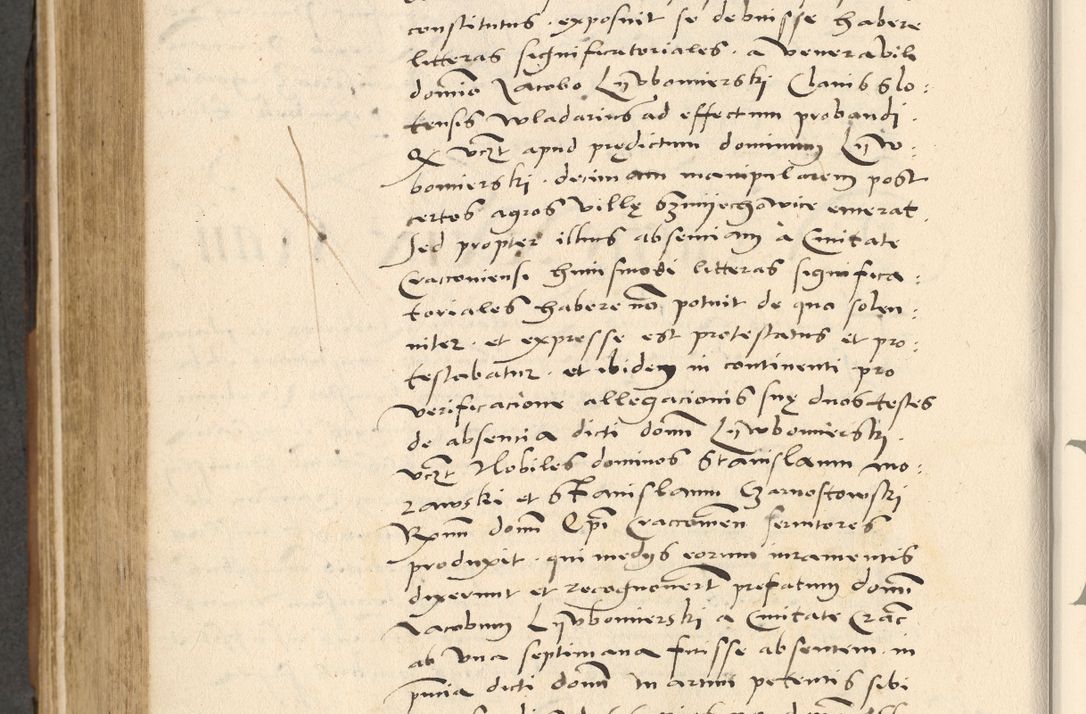 constitutus · exposuit se debuisse habere
litteras significatoriales · a venerabili
domino Jacobo Lÿwbomierski Clavis Slo:
tensis wladarius ad effectum probandi ·
Q vczt apud prędictum dominum Lÿw:
bomierski · decimam manipularem post
certos agros villę Szmijechowice emerat ·
Sed propter illius absenciam à Civitate
Cracoviensi huiusmodi litteras significa:
toriales habere nō potuit de quo solen:
niter · et expresse est protestatus et pro:
testabatur · et ibidem in continenti pro
verificacione allegacionis suę duos testes
de absencia dicti domī Lÿwbomierski ·
vczt Nobiles dominos Stanislaum mo:
rawski et Stanislaum Czarnostowski
Rxmī domī Epī Cracovien servitores
produxit · qui medys eorum iuramentis
dixerunt et recognovert prefatum domī
Jacobum Lÿwbomierski a Civitate Crac
ab una septimana fuisse absentem · in
pn̄cia dicti domī Martini petentis sibi